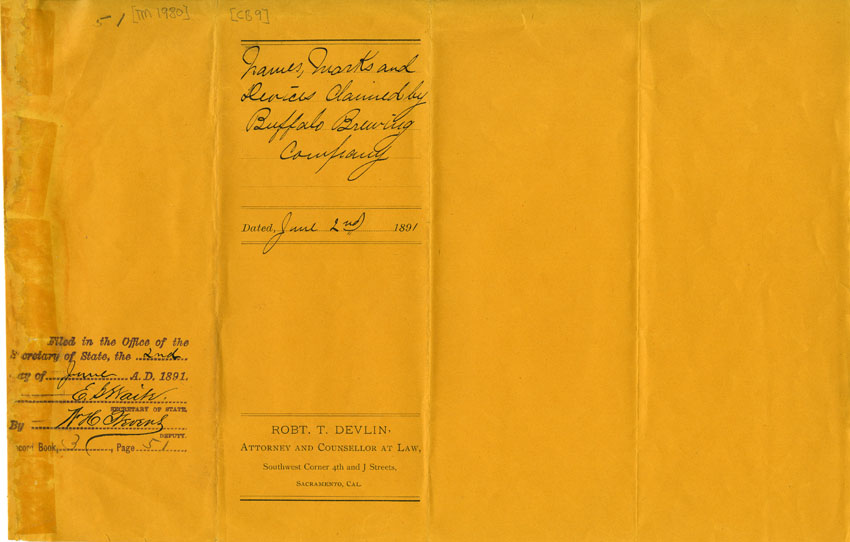 51 [TM 1980] [CB9]
Names, Marks and
Devices Claimed by
Buffalo Brewing
Company
Dated, June 2nd 1891
Filed in the Office of the
Secretary of State, the 2nd
day of June A. D. 1891.
E. G. Waite.
SECRETARY OF STATE,
By W. H. Stevens
DEPUTY.
Record Book, 3, Page 51
ROBT. T. DEVLIN,
ATTORNEY AND COUNSELLOR AT LAW,
Southwest Corner 4th and J Streets,
SACRAMENTO, CAL.